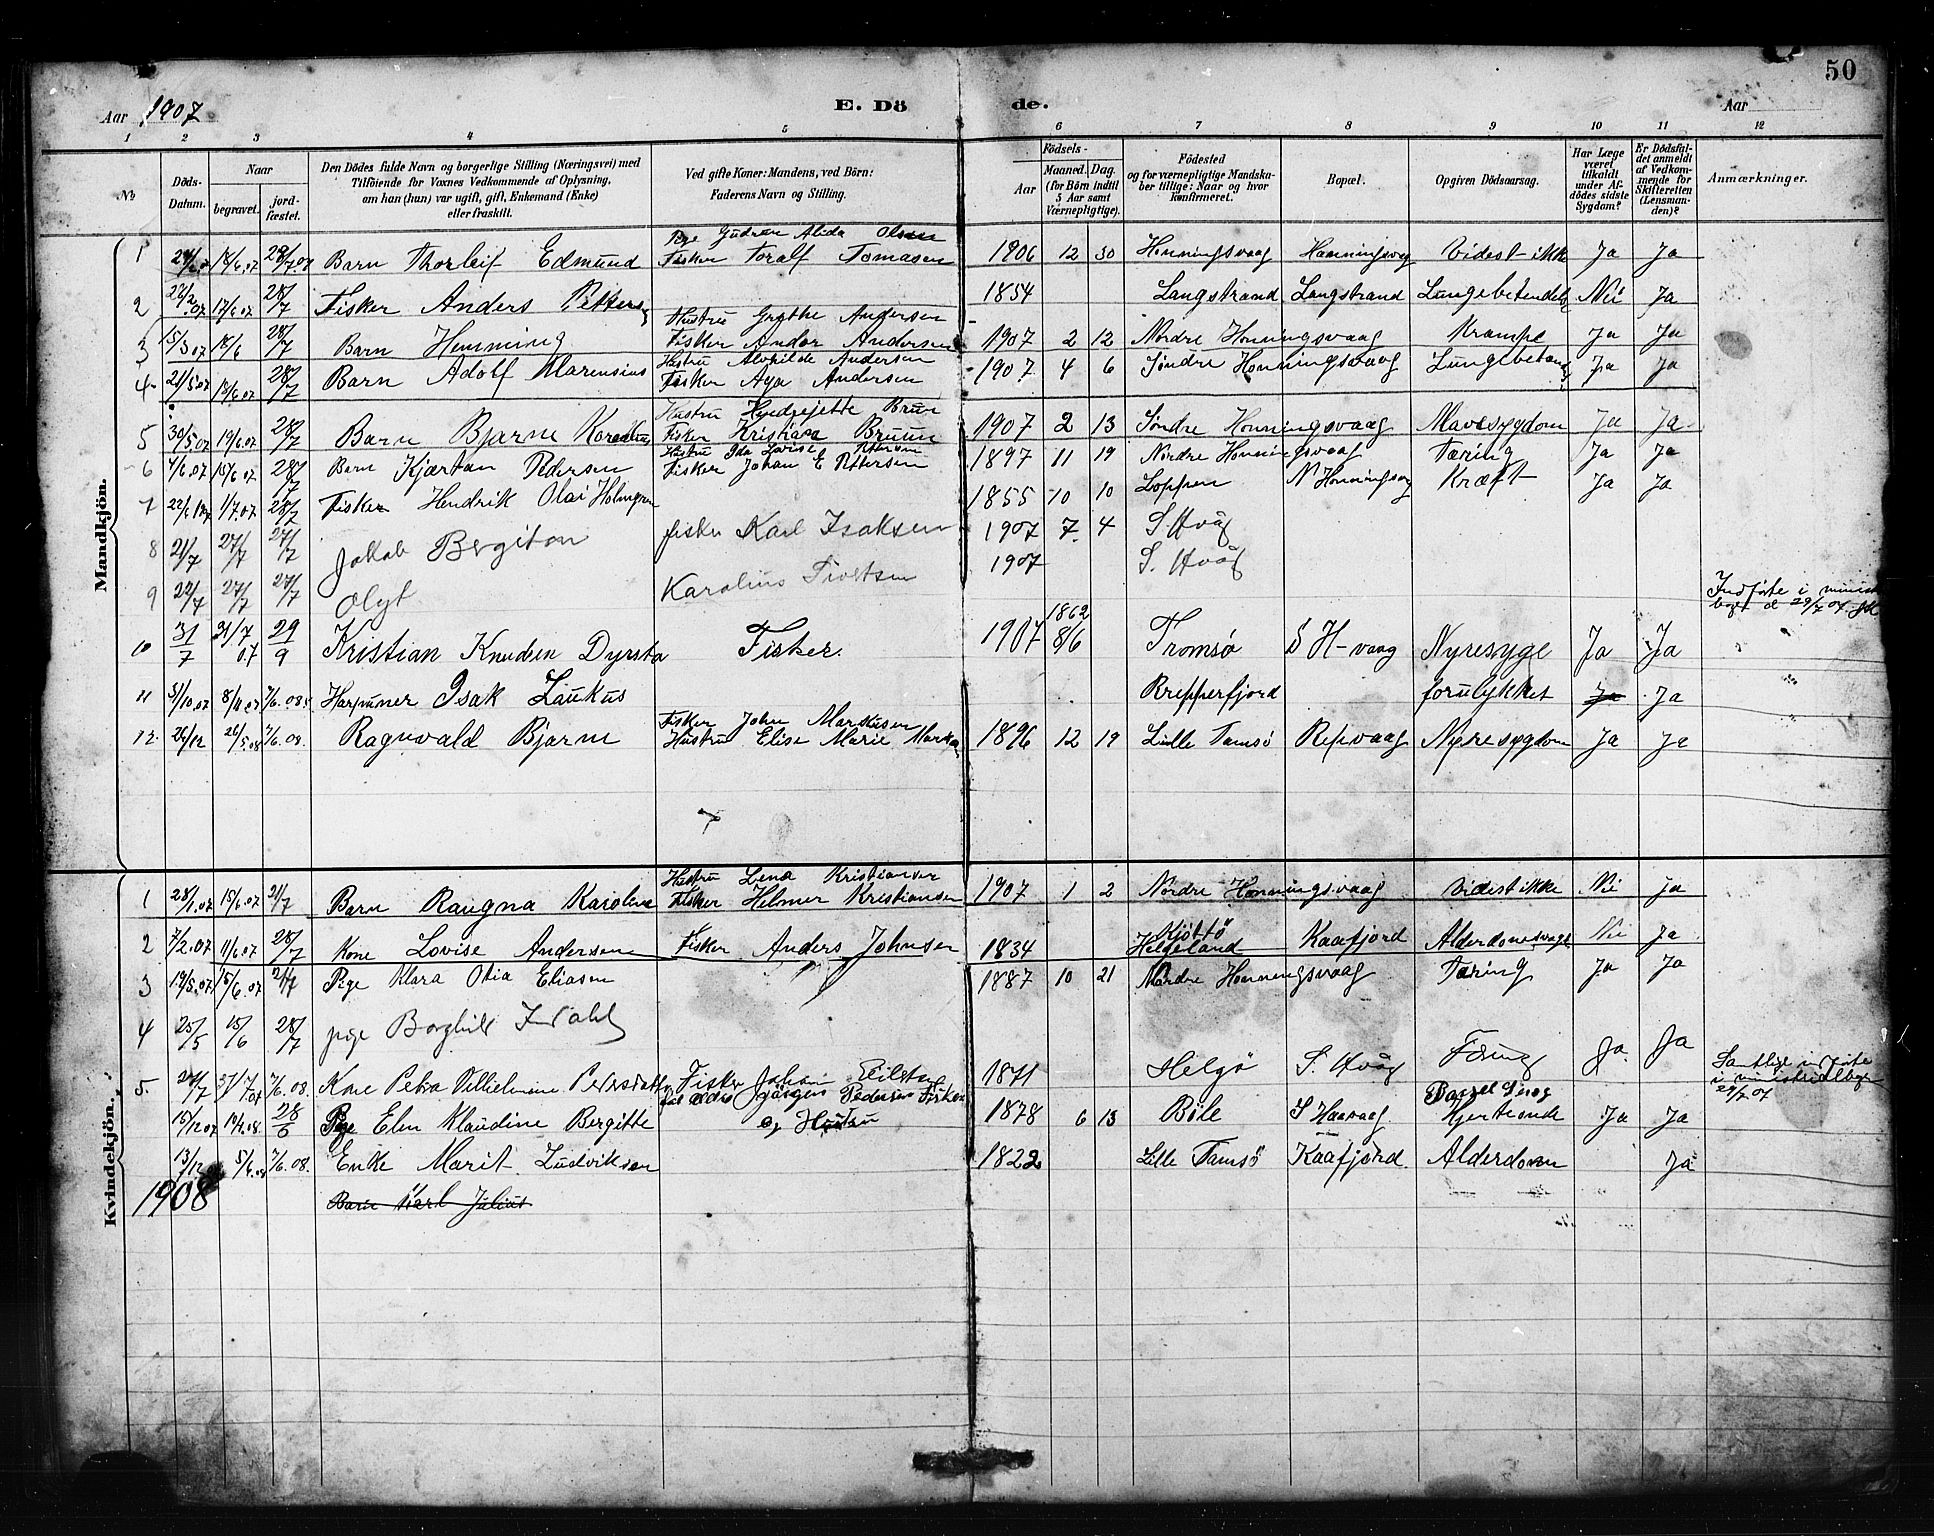 50
Aar 1907 E. Dö de. Aar
1 2 3 4 5 6 7 8 9 10 11 12
№ Döds-Datum. Naar begravet. jord-fæstet. Den Dödes fulde Navn og borgerlige Stilling (Næringsvei) med Tilföiende for Voxnes Vedkommende af Oplysning, om han (hun) var ugift, gift, Enkemand (Enke) eller fraskilt. Ved gifte Koner: Mandens, ved Börn: Faderens Navn og Stilling. Födsels- Aar Maaned. (for Börn indtil 5 Aar samt Værnepligtige). Dag. Födested og for værnepligtige Mandskaber tillige: Naar og hvor konfirmeret. Bopæl. Opgiven Dödsaarsag. Har Læge været tilkaldt under Afdödes sidste Sygdom? Er Dödsfaldet anmeldt af Vedkommende for Skifteretten (Lensmanden)? Anmærkninger.
Mandkjön.
Pige Gudrun Alida Olsen
1 18/6.07 28/7.07 Barn Thorleif Edmund Fisker Toralf Tomasen 1906 12 30 Honningsvaag Honningsvag Videst ikke Ja Ja
2 17/6.07 28/7 Fisker Anders Petters 1854 Langstrand Langstrand Nei Ja
Hustru Grethe Andersen
3 15/3 07 18/6 28/7 Barn Hemming Fisker Andor Andersen 1907 2 12 Nordre Honningsvaag Krampe Ja Ja
Hustru Alvhilde Andersen
4 21/5.07 18/6.07 28/7 Barn Adolf Marensius Fisker Aga Andersen 1907 4 6 Søndre Honningsvaag Lungebetæn Ja Ja
Hustru Bruun
5 30/5.07 19/6.07 28/7 Barn Bjarne Fisker Kristian Bruun 1907 2 13 Søndre Honningsvaag Mavesygdom Ja Ja
Hustru Ida Lovise Pettersen
6 4/6.07 15/6 07 28/7 Barn Kjartan Pedersen Fisker Johan E Pettersen 1897 11 19 Nordre Honningsvaag Tæring Ja Ja
7 1/7.07 28/7 Fisker Hendrik Olai Holmgren 1855 10 10 Loppen N Honningsvag Kræft Ja Ja
8 21/7 27/7 27/7 Jakob Bergiton fisker Karl Isaksen 1907 7. 4 S. Hvåg
9 22/7 27/7 27/7 Olgt Karolius 1907 S. Hvåg
Indførte i minist bogt d 29/7 07
1862
10 31/7 31/7 07 29/9 Kristian Knuden Dyrsta Fisker. 1907 8/6 Tromsø S H-vaag Nyresyge Ja Ja
11 31/10.07 8/11.07 7/6.08 Harpuner Isak Laukus Repperfjord forulykket Ja Ja
Fisker John Markusen
12. 26/12 26/5.08 7/6.08. Ragnvald Bjarne Hustru Elise Marie Marku 1896 12 19 Lille Tamsø Repvaag Nyresygdom Ja Ja
Kvindekjön.
Hustru Lena Kristiansen
1 28/1.07 15/6.07 21/7 Barn Raugna Karoline Fisker Helmer Kristiansen 1907 1 2 Nordre Honningsvaag Videst ikke Nei Ja
2 7/2.07 11/6.07 28/7 Kone Lovise Andersen Fisker Anders Johnsen 1834 Helgeland Kaafjord Nei Ja
3 19/5.07 15/6.07 21/7 Pige Klara Otia Eliasen 1887 10 21 Nordre Honningsvaag Tæring Ja Ja
4 25/5 15/6 28/7 pige Borghild
5. 7/6.08. Kone Petra Fisker Johan 1871 Helgø S. Hvåg Ja. Ja
Samtlige indførte i ministerialbogt 29/7 07
15/12 07 28/6 Pige Elen Klaudine Bergitte Jørgen Pedersen Fisker og Hustru 1878 6 13 S Haavaag Ja Ja
13/12 5/6.08 7/6.08. Enke Marit Ludviksen 1822 Lille Tamsø Kaafjord. Alderdom Ja
1908 Barn Karl Julius